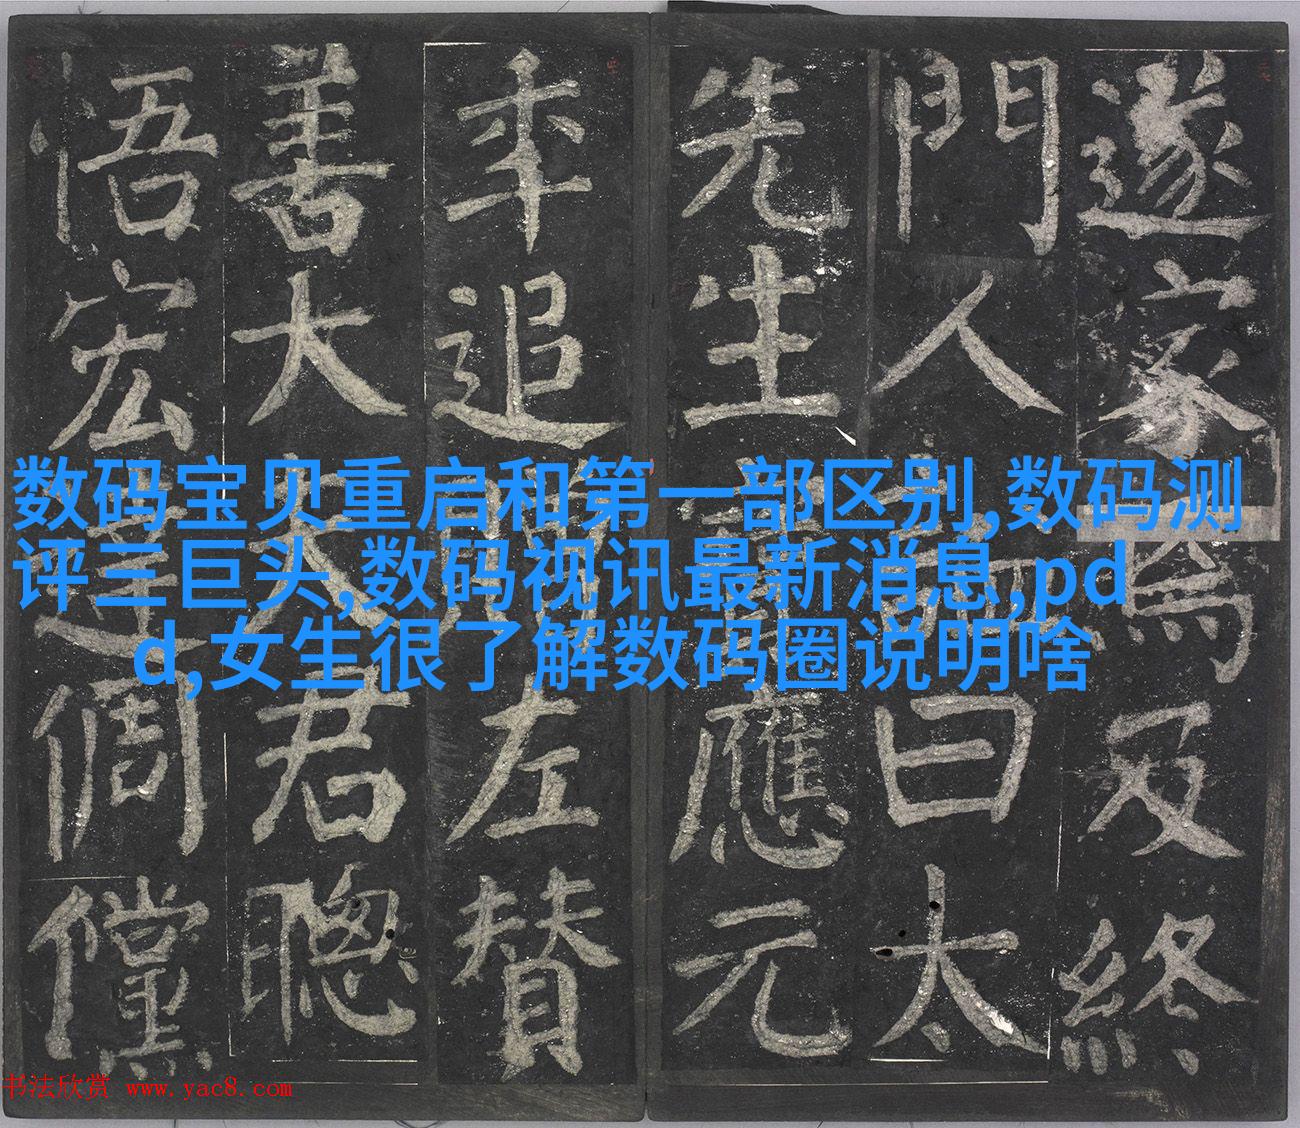 遂家焉及終
門人曰太
先生應元
年追左贊
善大夫君聰
悟宏達倜儻
数码宝贝重启和第一部区别,数码测
评三巨头,数码视讯最新消息,pd
d,女生很了解数码圈说明啥
书法欣赏 www.yac8.com